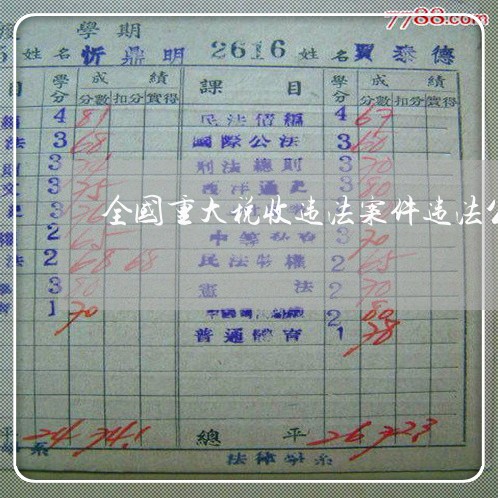 7788.com
學期
姓名 忻鼎明 2616 姓名 賈泰德
目 學分 成績 課目 學分 成績
分數 扣分 實得 分數 扣分 實得
4 81 民法債編 4 67
法 3 68 國際公法 3 60
3 刑法總則 3 70
3 75 西洋通史 3 80
全國重大税收违法案件违法公
權 2 65 3 70
法 2 68 68 民法物權 2 65
3 80 憲法 2 70
1 70 2 80
普通體育 1 78
平 24 74.1 總平 26 72.3
系 法律學系